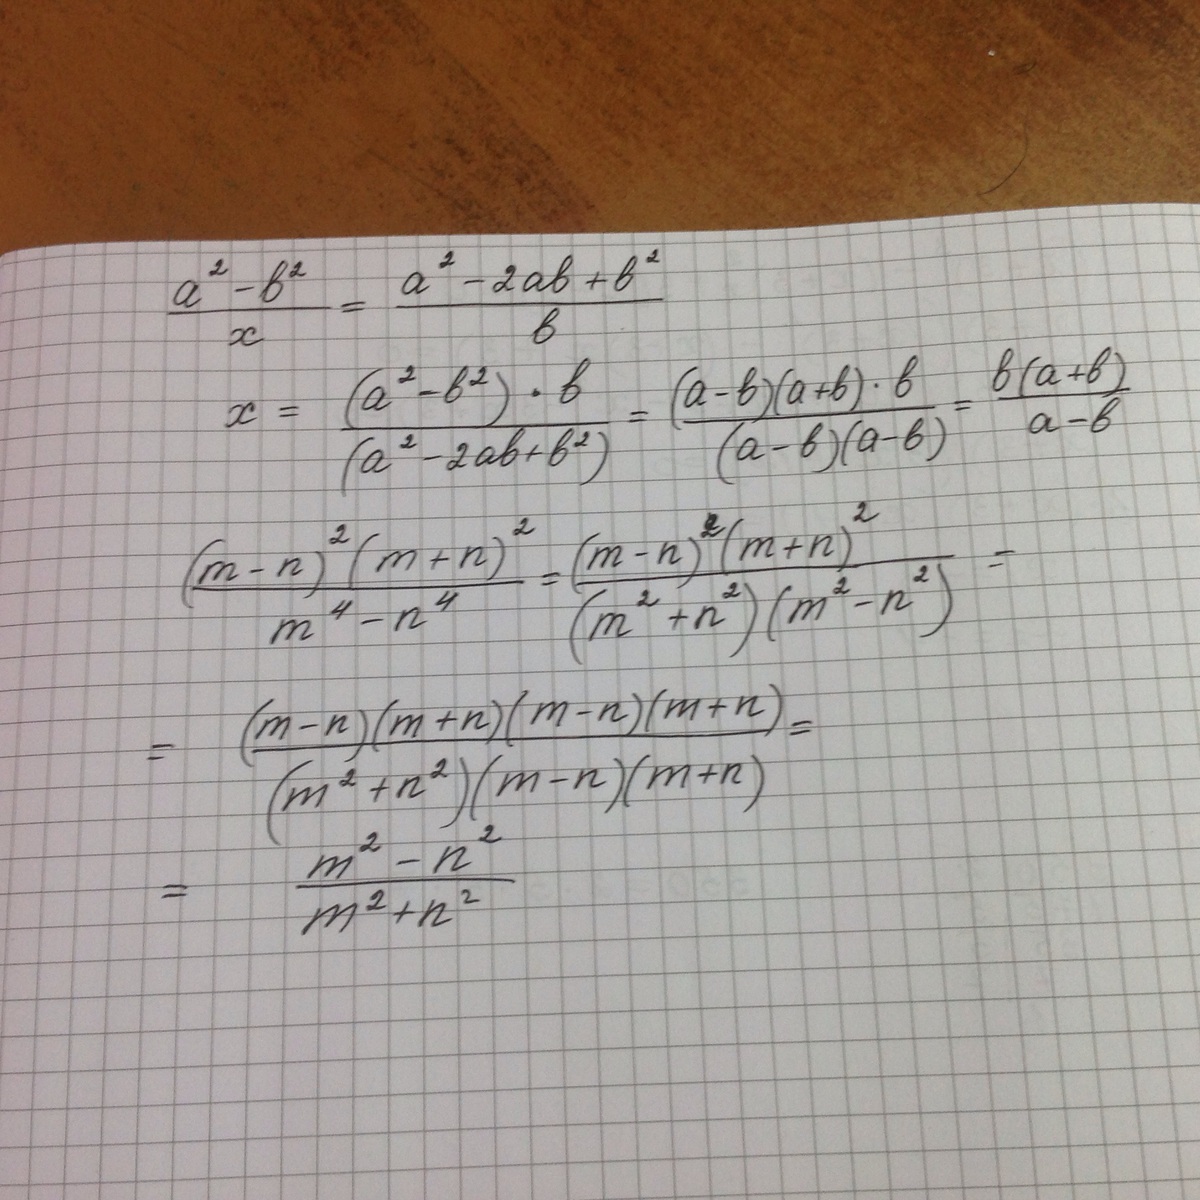 (a² - b²)/x = (a² - 2ab + b²)/b
x = ((a² - b²) · b)/((a² - 2ab + b²)) = ((a - b)(a + b) · b)/((a - b)(a - b)) = (b(a + b))/(a - b)
((m - n)² (m + n)²)/(m⁴ - n⁴) = ((m - n)² (m + n)²)/((m² + n²)(m² - n²)) =
= ((m - n)(m + n)(m - n)(m + n))/((m² + n²)(m - n)(m + n)) =
= (m² - n²)/(m² + n²)